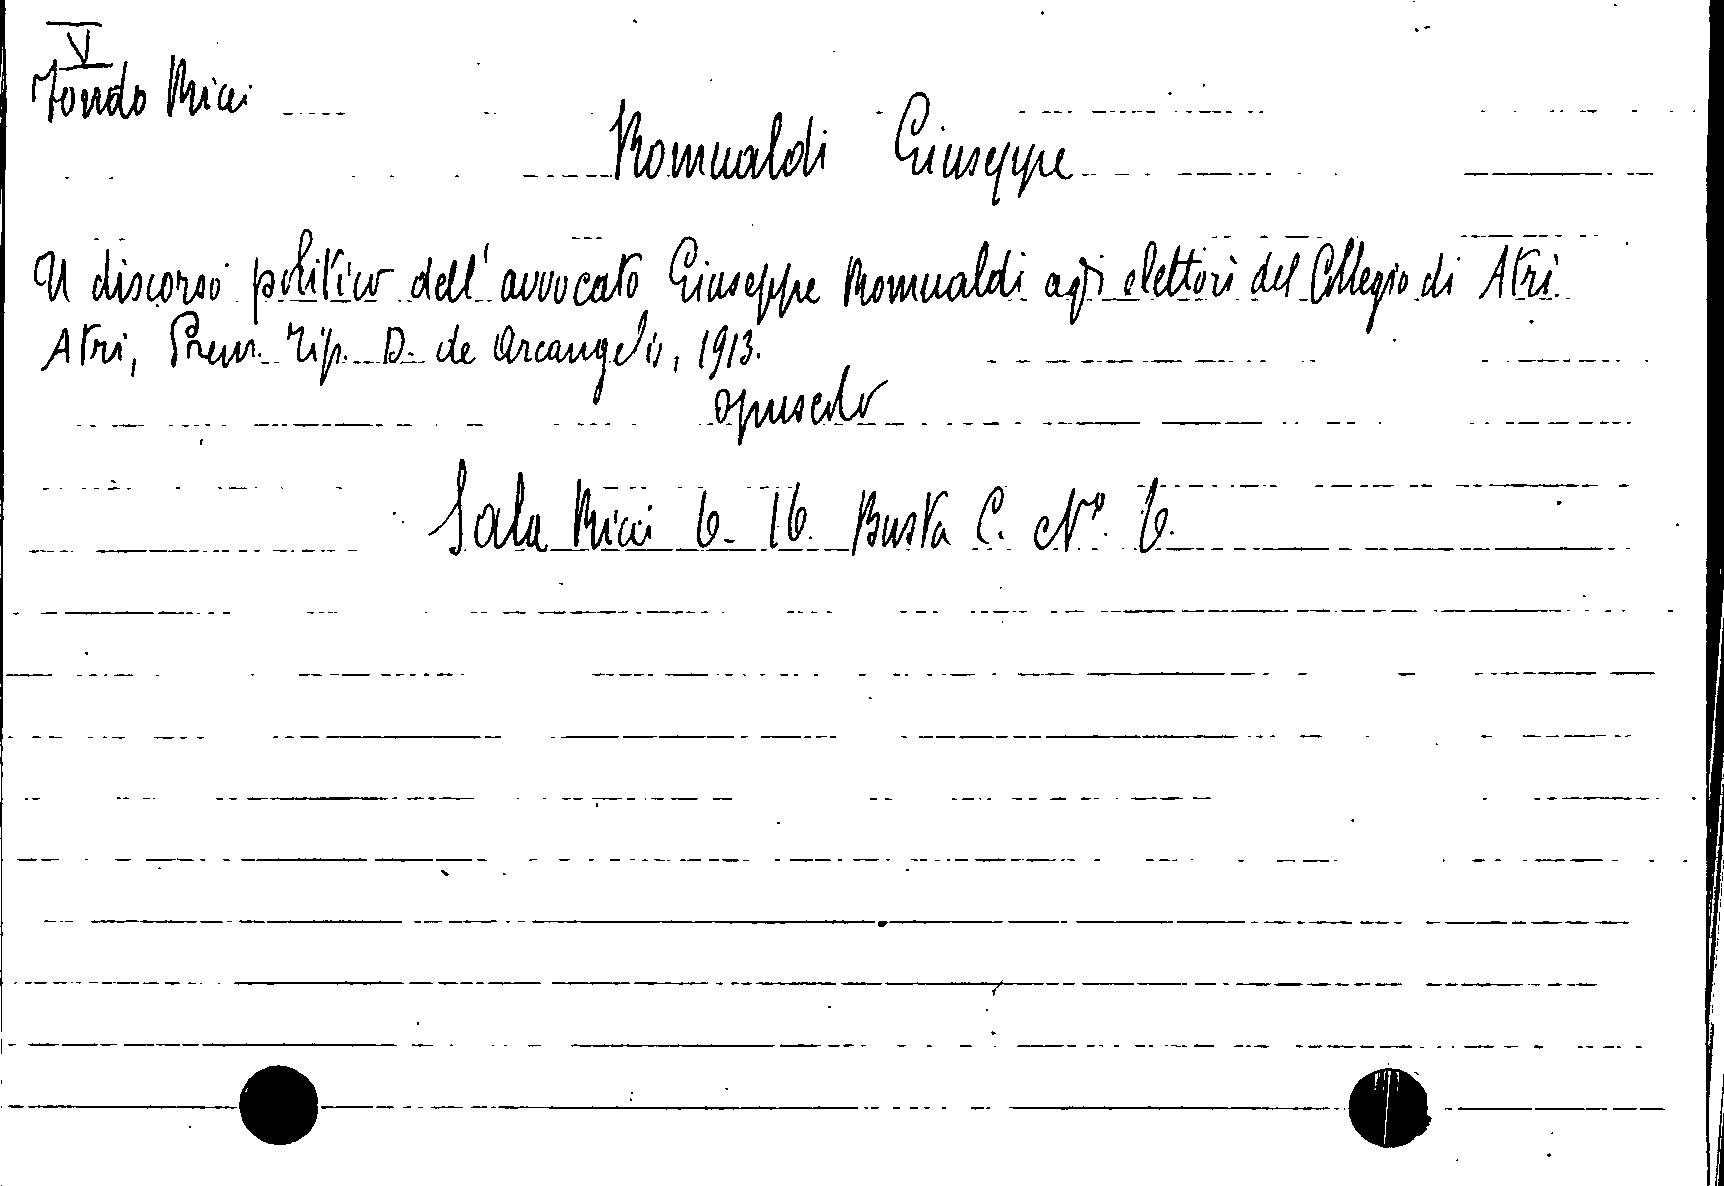 V
Fondo Ricci
Romualdi Giuseppe
Il discorso politico dell'avvocato Giuseppe Romualdi agli elettori del Collegio di Atri.
Atri, Prem. Tip. D. de Arcangelis, 1913.
opuscolo
Sala Ricci 6-16 Busta C. N° 6.